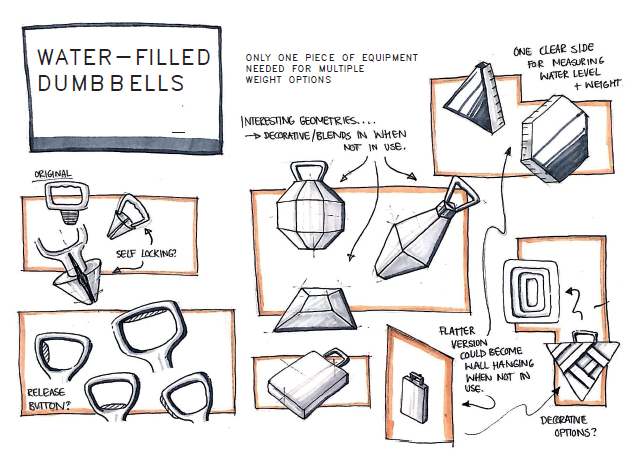 WATER-FILLED
DUMBBELLS
ONLY ONE PIECE OF EQUIPMENT
NEEDED FOR MULTIPLE
WEIGHT OPTIONS
ONE CLEAR SIDE
FOR MEASURING
WATER LEVEL
+ WEIGHT
INTERESTING GEOMETRIES....
→ DECORATIVE/BLENDS IN WHEN
NOT IN USE.
ORIGINAL
SELF LOCKING?
RELEASE
BUTTON?
FLATTER
VERSION
COULD BECOME
WALL HANGING
WHEN NOT IN
USE.
DECORATIVE
OPTIONS?